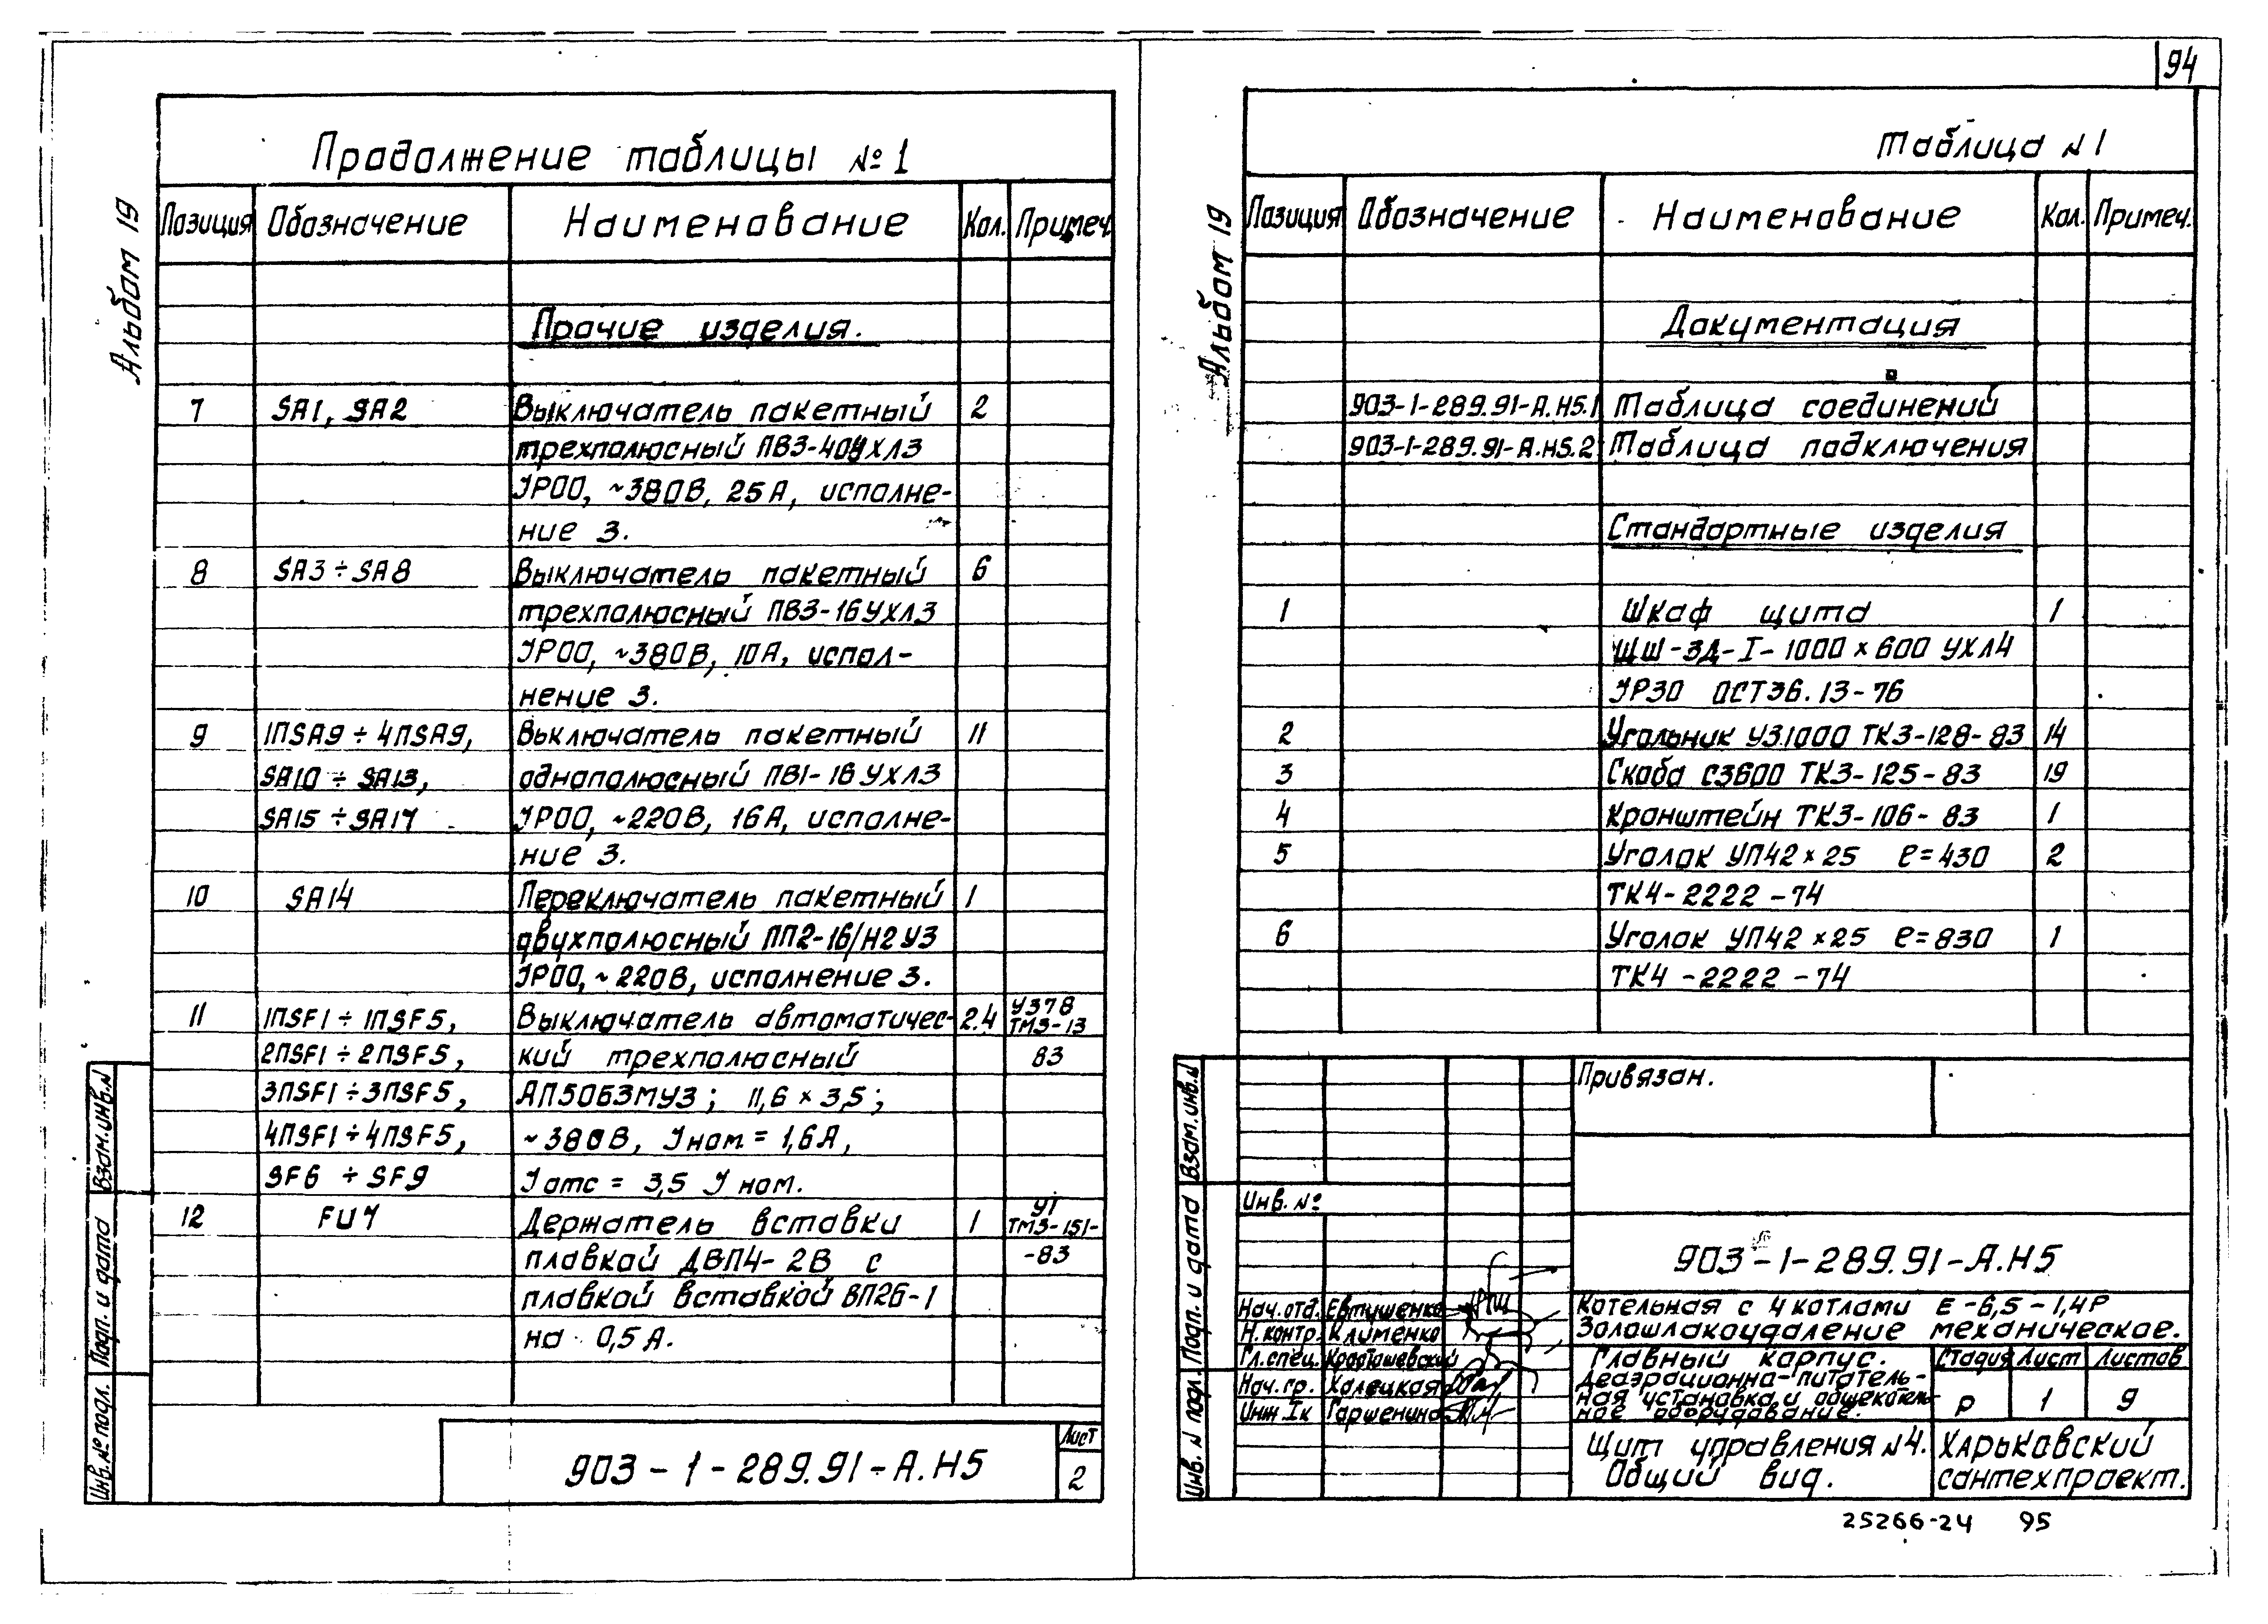 94
Альбом 19
Продолжение таблицы №1
Позиция Обозначение Наименование Кол. Примеч.
Прочие изделия.
7 SA1, SA2 Выключатель пакетный 2
трехполюсный ПВ3-40УХЛ3
JP00, ~380В, 25А, исполне-
ние 3.
8 SA3÷SA8 Выключатель пакетный 6
трехполюсный ПВ3-16УХЛ3
JP00, ~380В, 10А, испол-
нение 3.
9 1ПSA9÷4ПSA9, Выключатель пакетный 11
SA10÷SA13, однополюсный ПВ1-16УХЛ3
SA15÷SA17 JP00, ~220В, 16А, исполне-
ние 3.
10 SA14 Переключатель пакетный 1
двухполюсный ПП2-16/Н2У3
JP00, ~220В, исполнение 3.
11 1ПSF1÷1ПSF5, Выключатель автоматичес- 24 У378 ТМ3-13
2ПSF1÷2ПSF5, кий трехполюсный 83
3ПSF1÷3ПSF5, АП50Б3МУ3; 11,6×3,5;
4ПSF1÷4ПSF5, ~380В, Jном.=1,6А,
SF6÷SF9 Jотс=3,5 Jном.
12 FU7 Держатель вставки 1 У1 ТМ3-151-
плавкой ДВП4-2В с -83
плавкой вставкой ВП2Б-1
на 0,5А.
Взам.инв.№
Подп. и дата
Инв.№ подл.
903-1-289.91-А.Н5
Лист
2
Альбом 19
Таблица №1
Позиция Обозначение Наименование Кол. Примеч.
Документация
903-1-289.91-А.Н5.1 Таблица соединений
903-1-289.91-А.Н5.2 Таблица подключения
Стандартные изделия
1 Шкаф щита 1
ЩШ-ЗД-I-1000×600 УХЛ4
JP30 ОСТ36.13-76
2 Угольник У3.1000 ТК3-128-83 14
3 Скоба С3600 ТК3-125-83 19
4 Кронштейн ТК3-106-83 1
5 Уголок УП42×25 ℓ=430 2
ТК4-2222-74
6 Уголок УП42×25 ℓ=830 1
ТК4-2222-74
Взам.инв.№
Подп. и дата
Инв. № подл.
Привязан.
Инв. №
903-1-289.91-А.Н5
Нач.отд. Евтушенко
Н.контр. Клименко
Гл.спец.
Нач.гр. Халецкая
Инж Iк Гаршенина
Котельная с 4 котлами Е-6,5-1,4Р
Золошлакоудаление механическое.
Главный корпус.
Деаэрационно-питатель-
ная установка и общекотель-
ное оборудование.
Стадия Лист Листов
Р 1 9
Щит управления №4.
Общий вид.
Харьковский
сантехпроект.
25266-24 95